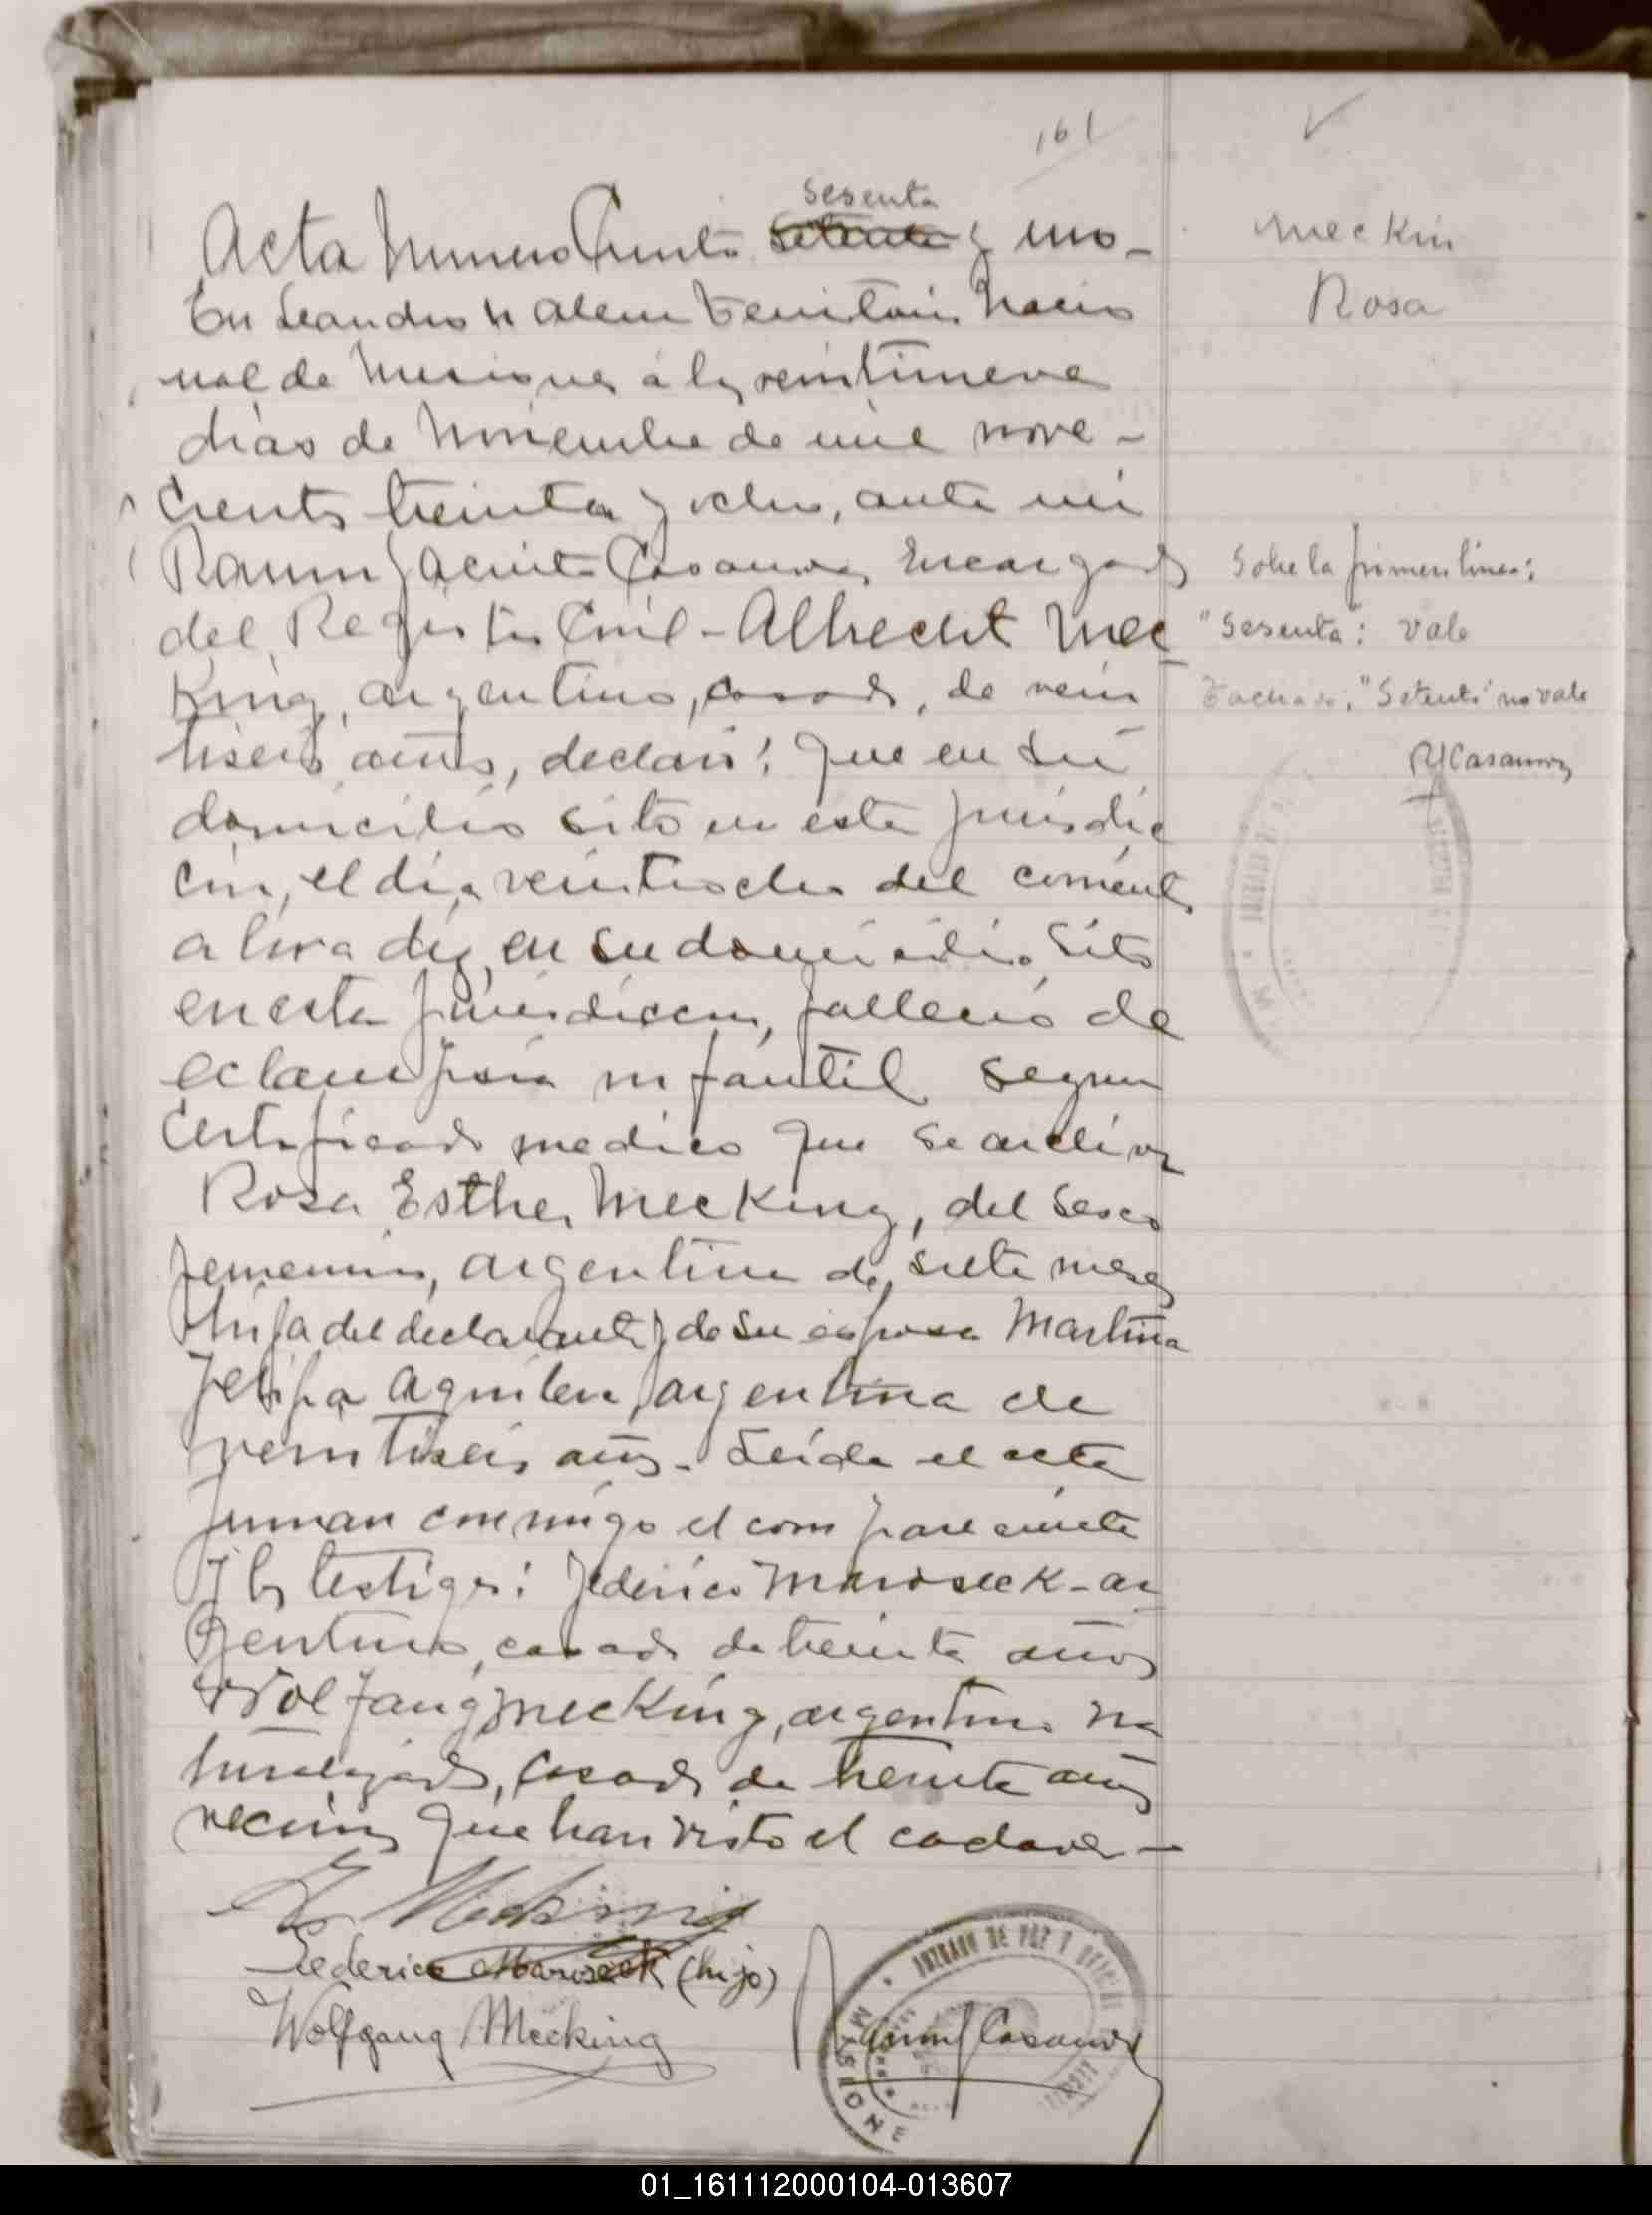 161
Acta Numero Ciento Sesenta Setenta y uno-
En Leandro N Alem Territorio Nacio
nal de Misiones á los veintinueve
dias de Noviembre de mil nove-
cientos treinta y ocho, ante mi
Ramon Jacinto Casanova, Encargado
del Registro Civil - Albrecht Mec
King, argentino, casado, de vein
tiseis años, declaró: Que en su
domicilio sito en esta jurisdic
cion, el dia veintiocho del corriente
a hora diez, en su domicilio sito
en esta jurisdiccion, falleció de
eclampsia infantil segun
Certificado medico que se archiva
Rosa Esther Mecking, del sexo
femenino, argentina de siete meses
hija del declarante y de su esposa Martina
Felipa Aguilera, argentina de
veintiseis años. Leida el acta
firman conmigo el compareciente
y los testigos: Federico Maroseck-ar
gentino, casado de treinta años
Wolfang Mecking, argentino na
turalizado, casado de treinta años
vecinos que han visto el cadaver-
Mecking
Federico Maroseck (hijo)
Wolfgang Mecking
Ramon J Casanova
JUZGADO DE PAZ Y OFICI
MISIONE
Meckin
Rosa
Sobre la primera linea:
"Sesenta": vale
Tachado: "Setenta" no vale
RJCasanova
01_161112000104-013607